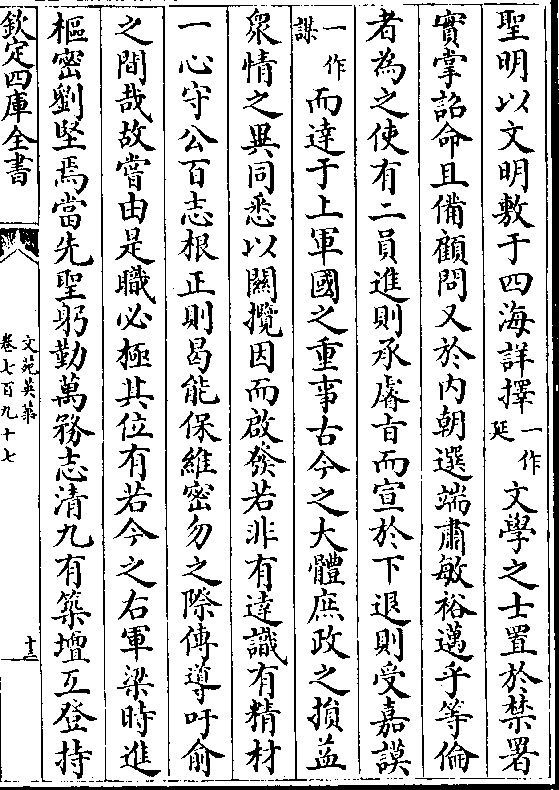 聖明以文明敷于四海詳擇一作延文學之士置於禁署
實掌詔命且備顧問又於内朝選端肅敏裕邁乎等倫
者為之使有二員進則承睿旨而宣於下退則受嘉謨
一作謀而達于上軍國之重事古今之大體庶政之損益
衆情之異同悉以關攬因而啟發若非有達識有精材
一心守公百志根正則曷能保維密勿之際傳導吁俞
之間哉故嘗由是職必極其位有若今之右軍梁時進
樞密劉堅焉當先聖躬勤萬務志清九有築壇互登持
欽定四庫全書
文苑英華
卷七百九十七
十三